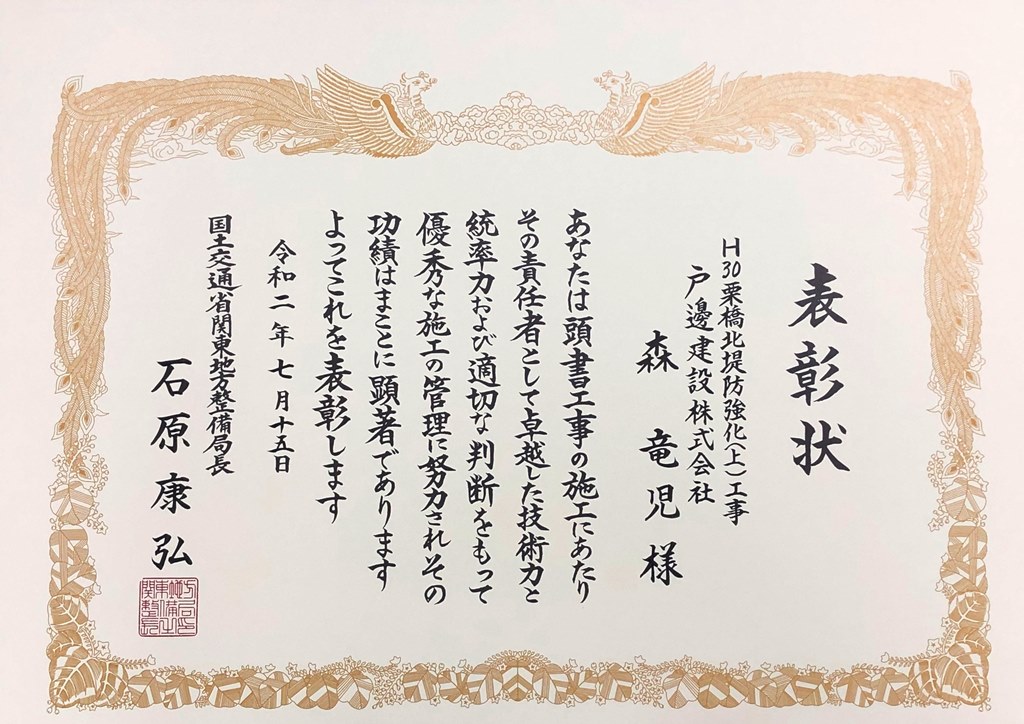 表彰状
H30栗橋北堤防強化(上)工事
戸邊建設株式会社
森竜児様
あなたは頭書工事の施工にあたり
その責任者として卓越した技術力と
統率力および適切な判断をもって
優秀な施工の管理に努力されその
功績はまことに顕著であります
よってこれを表彰します
令和二年七月十五日
国土交通省関東地方整備局長
石原康弘